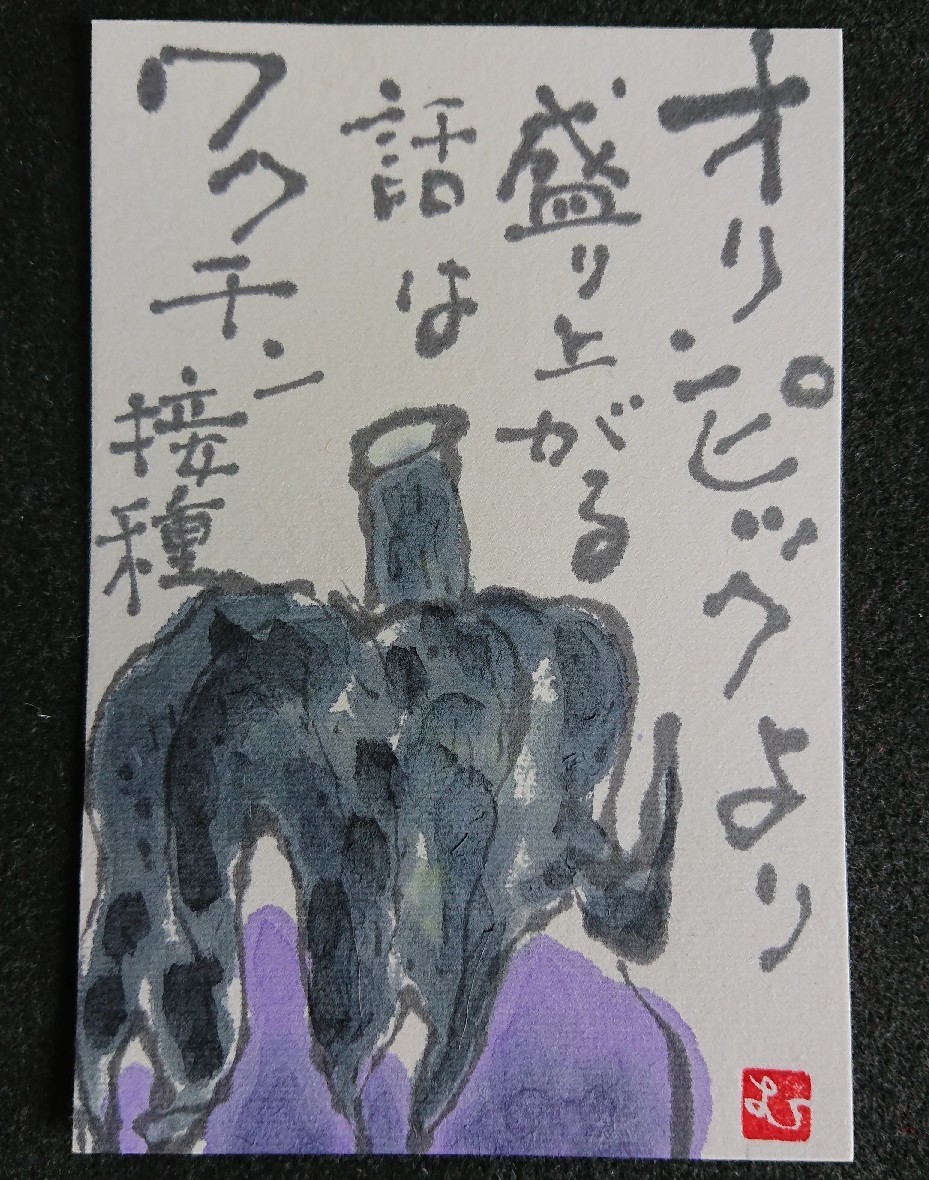 オリンピックより
盛り上がる
話は
ワクチン
接種